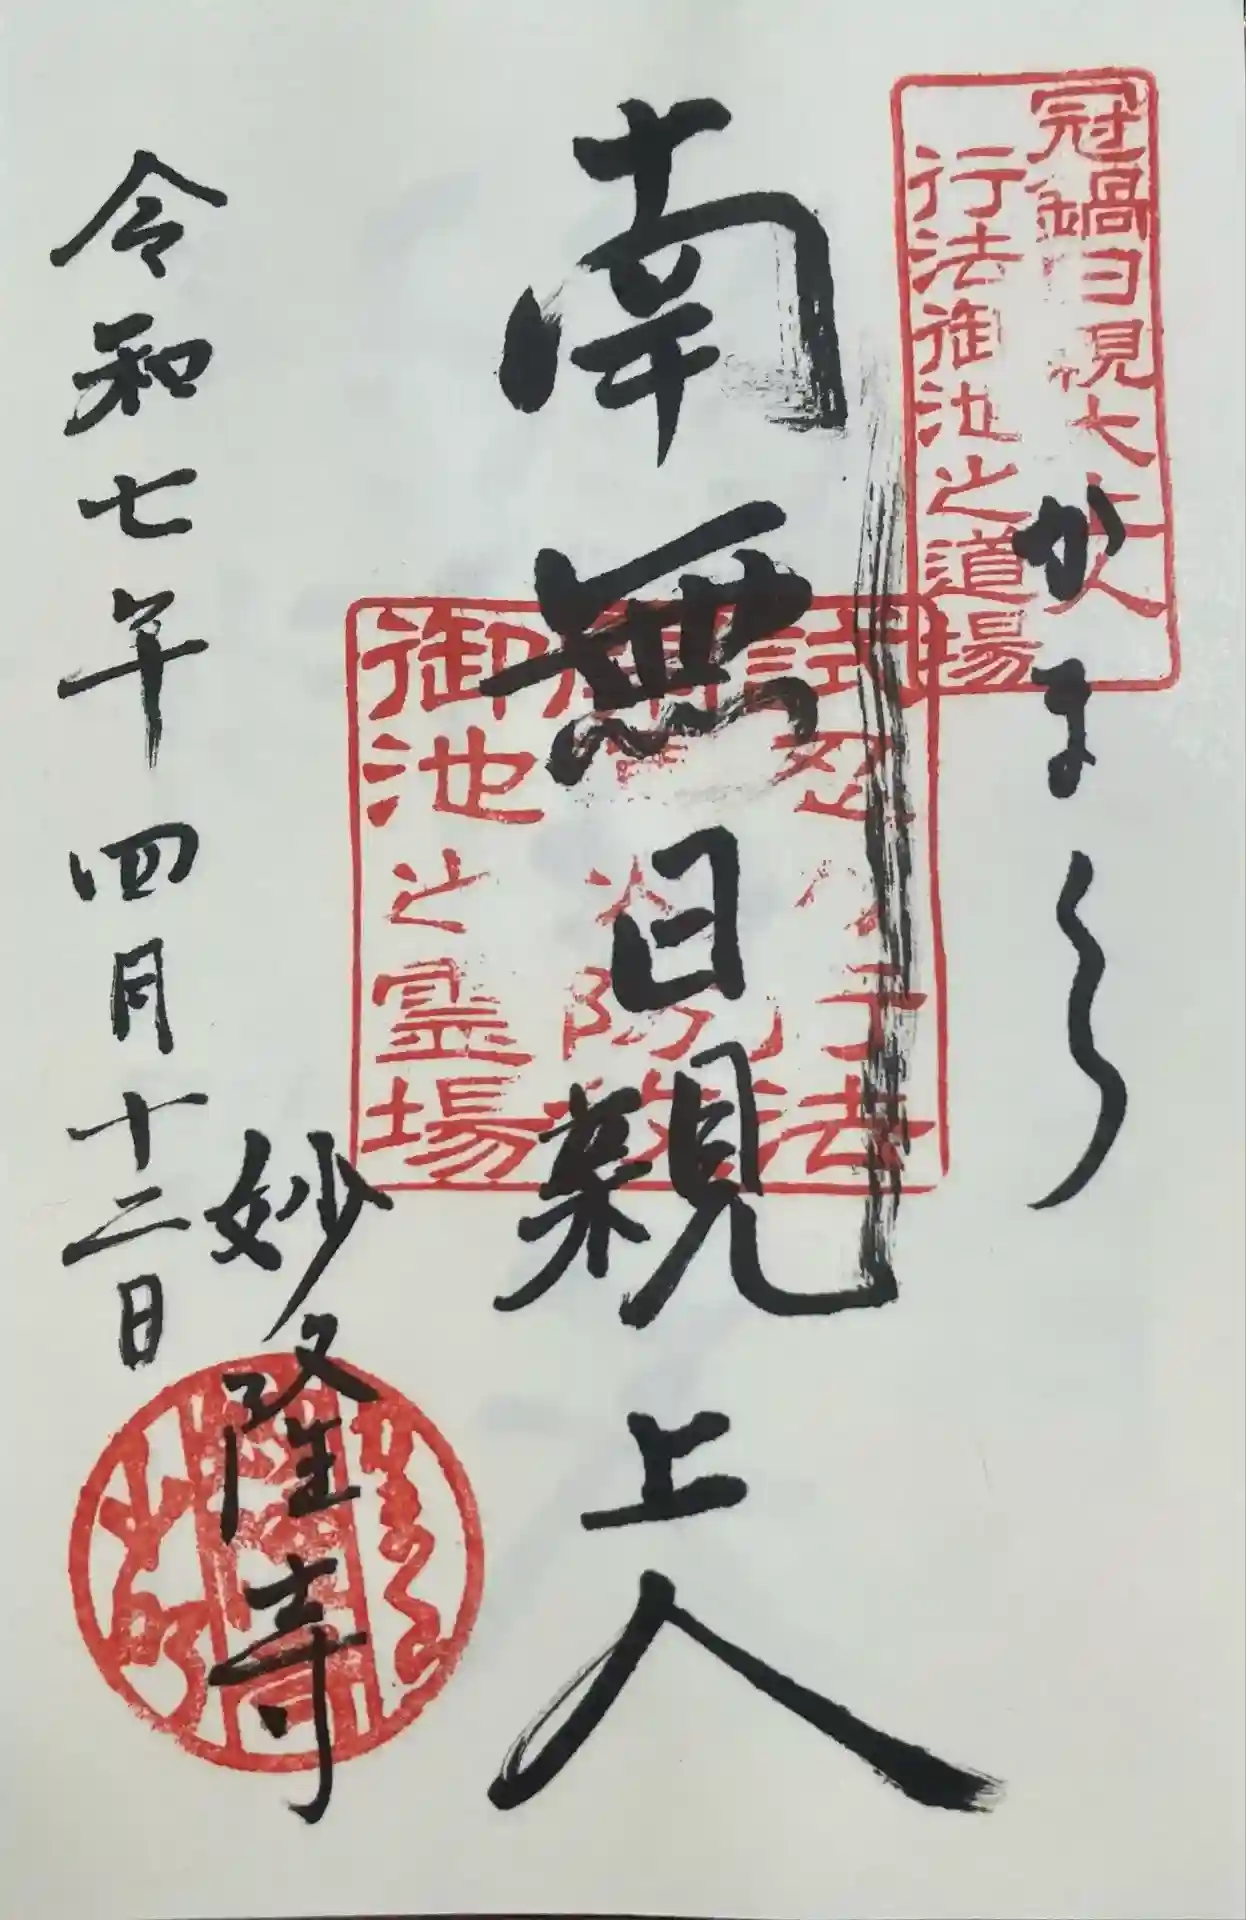 冠鍋日親大上人
行法御池之道場
かまくら
南無日親上人
御池之霊場
妙隆寺
令和七年四月十二日